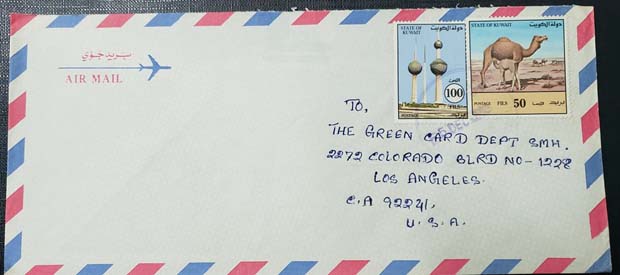 بريد جوي
AIR MAIL
STATE OF KUWAIT دولة الكويت
100
FILS
POSTAGE
STATE OF KUWAIT دولة الكويت
POSTAGE FILS 50
TO,
THE GREEN CARD DEPT SMH.
2272 COLORADO BLRD NO-1228
LOS ANGELES.
C.A 92241.
U.S.A.